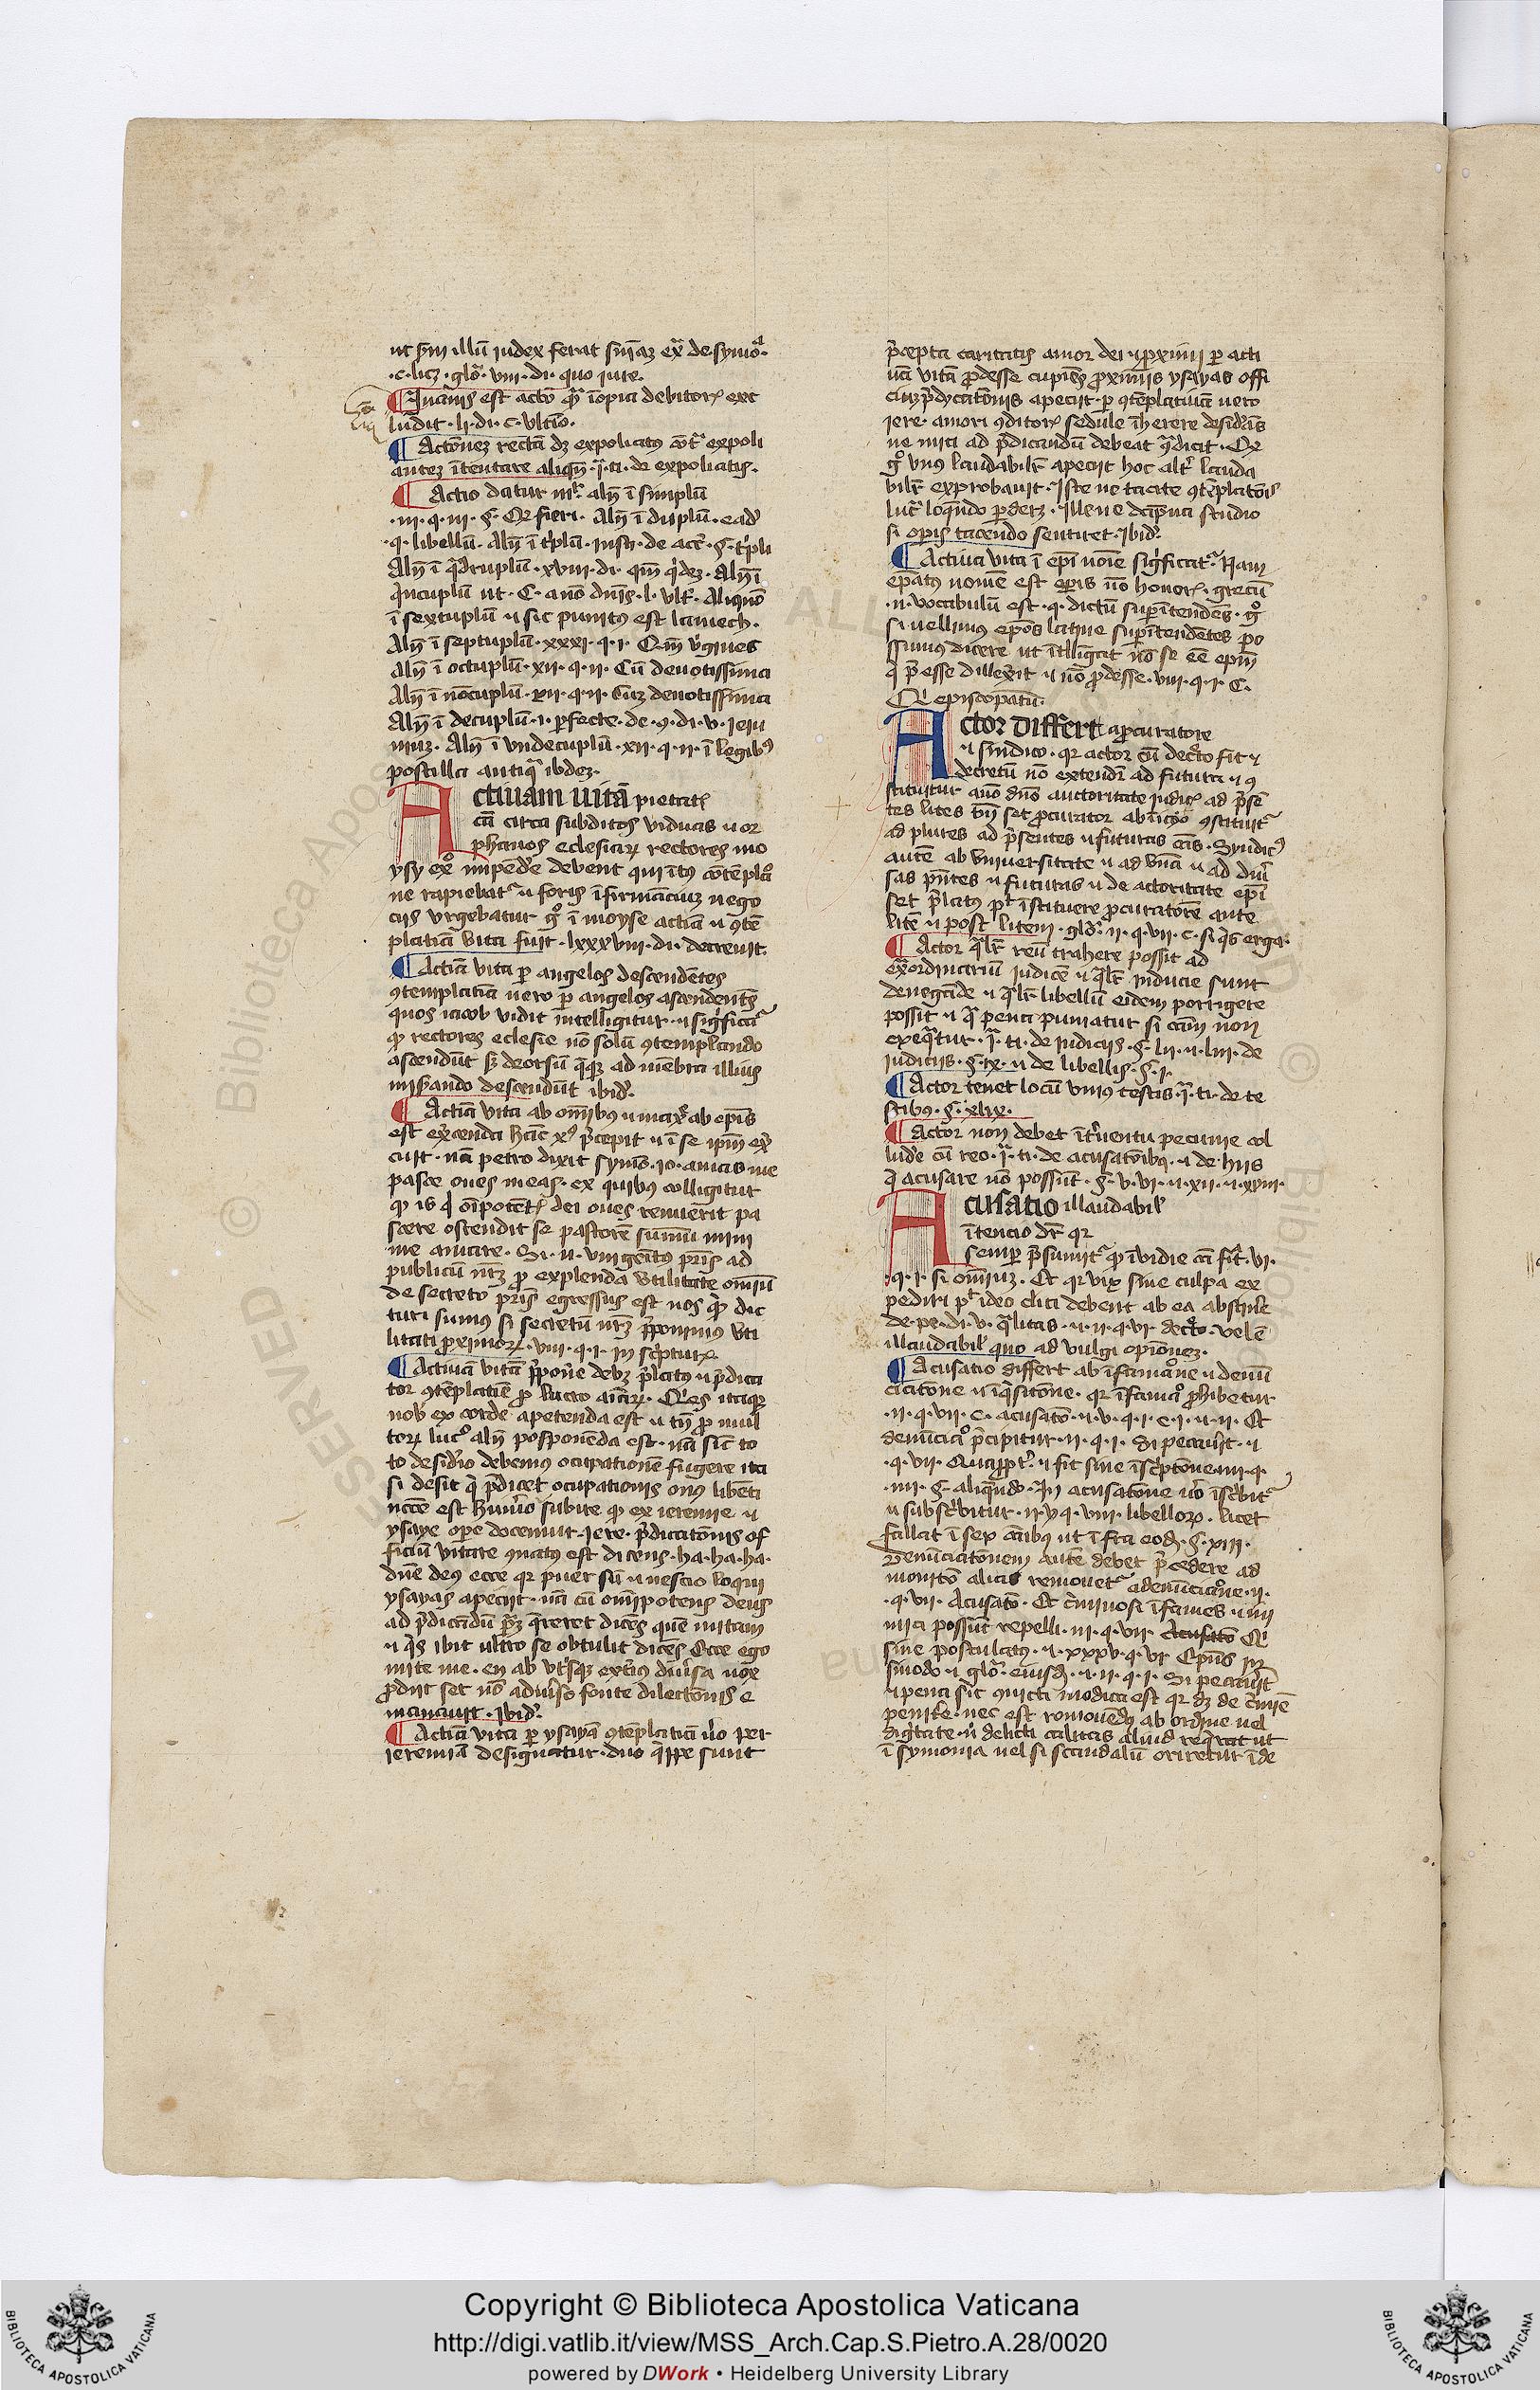 ut scđm illũ iudex ferat sniãz ex̃ de symoª.
·c·licz·gloͦ·viii·di·quo iure.
¶ Inanis est actõ quã inopia debitorꝭ exc
ludit·li·di·c·ultĩo.
¶ Actõnez rectã dz expoliatꝰ cõtª expoli
antez ĩtentare aliqñ·j̃·ti·de expoliatis.
¶ Actio datur iñ alqñ ĩ simplũ
·iii·q·iii·§·Qđ fieri· Alqñ ĩ duplũ·eađ
·q·libellũ· Alqñ ĩ tⁱplũ·insti·de act̃·§·tⁱpli
Alqñ ĩ qªdruplũ·xviii·di·qm̃ qⁱdez·Alqñ ĩ
qⁱncuplũ ut·C·añ dñis·l·vlt̃·Aliqñ
ĩ sextuplũ ⁊ sic punitꝰ est lamech.
Alqñ ĩ septuplũ·xxxi·q·i·Qm̃ vⁱgines
Alqñ ĩ octuplũ·xii·q·ii·Cũ deuotissima
Alqñ ĩ nõcuplũ·xii·q·ii·cũz deuotissima
Alqñ ĩ decuplũ·i·ꝑfecte·de·ꝯ·di·v·ieiu
niuz· Alqñ ĩ vndecuplũ·xii·q·ii·ĩ legibꝰ
postilla antiqª ibdez.
Actiuam uitã pietatꝭ
cã circa subditos viduas ⁊ or
phanos eclesiarꝝ rectores mo
ysy exͦ impẽdẽ debent qui ĩtꝰ cõtẽplaͦ
ne rapiebatᷣ ⁊ foris ĩfirmãciuz nego
ciis vrgebatur gͦ ĩ moyse actiã ⁊ ꝯtẽ
platiã vita fuit·lxxxviii·di·decreuit.
¶ Actiã vita ꝑ angelos descendẽtes
ꝯtemplatiã uero ꝑ angelos ascendentẽs
quos iacob vidit intelligitur·⁊ sigͥficatᷣ
ꝙ rectores eclesie nõ solũ ꝯtemplando
ascendũt sꝫ deorsũ qͦꝫ ad mẽbra illius
misĩando descendũt ibiđ.
¶ Actiã vita ab omĩbus ⁊ maxĩ ab epĩs
est exⁱcenda hãc xꝰ p̃cepit ⁊ ĩ se ipm̃ exⁱ
cuit·nã petro dixit symõ·io·amas me
pasce oues meas·ex quibus colligitur
ꝙ is qͥ oĩpotẽtꝭ dei oues renuerit pa
scere ostendit se pastorẽ summũ mini
me amare·Si·⁊·vnigeĩtꝰ pris̃ ad
publicũ nr̃z ꝓ explenda vtilitate omiũ
de secreto pris̃ egressus est nos qͥđ dic
turi sumus si secretũ nr̃z p̃ponimus vti
litati proximorꝝ·viii·q·i·in scⁱpturꝭ.
¶ Actiuã vitã p̃pone debz p̃latꝰ ⁊ p̃dica
tor ꝯtẽplatiẽ ꝓ lucro aĩarꝝ·Qⁱes itaqꝫ
nob̃ ex corde apetenda est ⁊ tñ ꝓ mul
torꝝ lucͦ alqñ posponẽda est·nã sic̃ to
to desidⁱo debemus ocupationẽ fugere ita
si desit qͥ p̃dicet ocupationis onꝰ libẽti
nccẽ est humⁱo subire ꝙ ex ieremie ⁊
ysaye oꝑe docemur·iere·p̃dicatõnis of
ficiũ vitare ꝯnatꝰ est dicens·ha·ha·ha·
dñe deus ecce qr puer sũ ⁊ nescio loqui
ysayas apetiit·nã cũ omĩpotens deus
ad p̃dicãdũ p̃z qͥreret dicẽs quẽ mittam
⁊ qⁱs ibit ultro se obtulit dicẽs Ecce ego
mite me·en ab vtⁱsqꝫ extⁱus diuⁱsa uox
ꝓdiit set nõ adiuⁱso fonte dilectõnis e
manauit·Ibiđ.
¶ Actiã vita ꝑ ysayã ꝯtẽplatiã ũo per
ieremiã designatur·duo qⁱppe sunt
p̃cepta caritatis amor dei ⁊ ꝓximi ꝑ acti
uã vitã ꝓdesse cupiẽs ꝓximis ysayas offi
ciuz p̃dycatõnis apetiit·ꝑ ꝯtẽplatiuã uero
iere·amori ꝯditorꝭ sedule ĩherere desidⁱãs
ne miti ad p̃dicandũ debeat ꝯªdicit·Qđ
gͦ vnus laudabilꝭ apetiit hoc altⁱ lauda
bilꝭ exprobauit·Iste ne tacite ꝯtẽplatõis
lucͣ loqͥndo ꝑderz·Ille ne dãpna studio
si opis tacendo sentiret·Ibiđ.
¶ Actiua vita ĩ epĩ noĩe sigⁱficatᷣ·Nam
epatꝰ nomẽ est opis nõ honorꝭ·grecũ
·⁊·vocabulũ est·q·dictũ suꝑĩtendẽs·gͦ
si uellimus epõs latine suꝑĩtendẽtes po
ssumus dicere ut ĩtlligat nõ se eẽ epm̃
qͥ p̃esse dillexit ⁊ nõ ꝓdesse·viii·q·i·C·
Qⁱ episcopatũ.
Actor differt aꝓcuratore
⁊ sindico·qr actor cũ decͤto fit ⁊
decretũ nõ extendĩ ad futura ⁊ ꝯ
stituitur añ dño auctoritate iudicꝭ ad p̃sẽ
tes lites tñ set ꝓcurator ab initio ꝯstituitᷣ
ad plures ad p̃sentes ⁊ futuras cãs·Syndicꝰ
autẽ ab vniuersitate ⁊ ad vnã ⁊ ad diuⁱ
sas p̃ntes ⁊ futuras ⁊ de actoritate epĩ
set p̃latꝰ pͭ ĩstituere ꝓcuratorẽ ante
litẽ ⁊ post litem·gloͦ·ii·q·vii·c·si qⁱs erga·
¶ Actor qªlꝭ reũ trahere possit ad
exªordinariũ iudicẽ ⁊ qªlꝭ inducie sunt
denegãde ⁊ qªlꝭ libellũ eidem porrigere
possit ⁊ qª pena puniatur si cãm non
exeqªtur·j̃·ti·de iudiciis·§·lii·⁊·liii·de
iudiciis·§·ix·⁊ de libellis·§·i·
¶ Actor tenet locũ vnius testis·j̃·ti·de te
stibꝰ·§·xlix·
¶ Actor non debet ĩtⁱuentu pecunie col
ludẽ cũ reo·j̃·ti·de acusatõibꝰ·⁊ de hiis
qͥ acusare nõ possũt·§·v·vi·⁊·xii·⁊·xviii·
Acusatio illaudabil̃
ĩtencio dr̃ qr
semꝑ p̃sumitᷣ ꝙ ĩuidie cã fit̃·vi·
·q·i·si omiuz·Et qr vix sine culpa ex
pediri pͭ ideo clici debent ab ea abstinẽ
de·pe·di·v·qªlitas·⁊·ii·q·vi·decͤto·uel ẽ
illaudabil̃ quo ad vulgi opiõnez.
¶ Acusatio differt ab ĩfamaͦne ⁊ denũ
ciatõne ⁊ ĩqⁱsitõne·qr ĩfamaͦ ꝓhibetur
·ii·q·vii·c·acusatõ·⁊·v·q·i·c·i·⁊·ii·Et
denũciaͦ p̃cipitur·ii·q·i·Si peccauⁱt·⁊
·q·vii·Quapptⁱ·⁊ fit sine ĩscⁱptõne·iiii·q·
·iiii·§·aliqªndo·In acusatõne ũo ĩscⁱbitᷣ
⁊ subscⁱbitur·ii·q·viii·libellorꝝ·licet
fallat ĩ sex cãibus ut ĩfra eoď·§·xiii·
Denũciatõnem autẽ debet p̃cedere ad
monitõ alias remouetᷣ adenũciaͦne·ii·
·q·vii·Acusatõ·Et cⁱminosi ĩfames ⁊ ini
mici possũt repelli·iii·q·vii· Qⁱ
sine postulatꝰ·⁊·xxxv·q·vi·Epũs in
sinodo ⁊ gloͦ·eiusđ·⁊·ii·q·i·Si peccauⁱt
⁊ pena sic ꝯuicti modica est qr dz de cⁱmiẽ
penitẽ·nec est remouẽdꝰ ab ordine uel
digⁱtate·nⁱ delicti calitas aliud reqⁱrat ut
ĩ symonia uel si scandalũ oriretur ĩde
Copyright © Biblioteca Apostolica Vaticana
http://digi.vatlib.it/view/MSS_Arch.Cap.S.Pietro.A.28/0020
powered by DWork • Heidelberg University Library
BIBLIOTECA APOSTOLICA VATICANA
BIBLIOTECA APOSTOLICA VATICANA